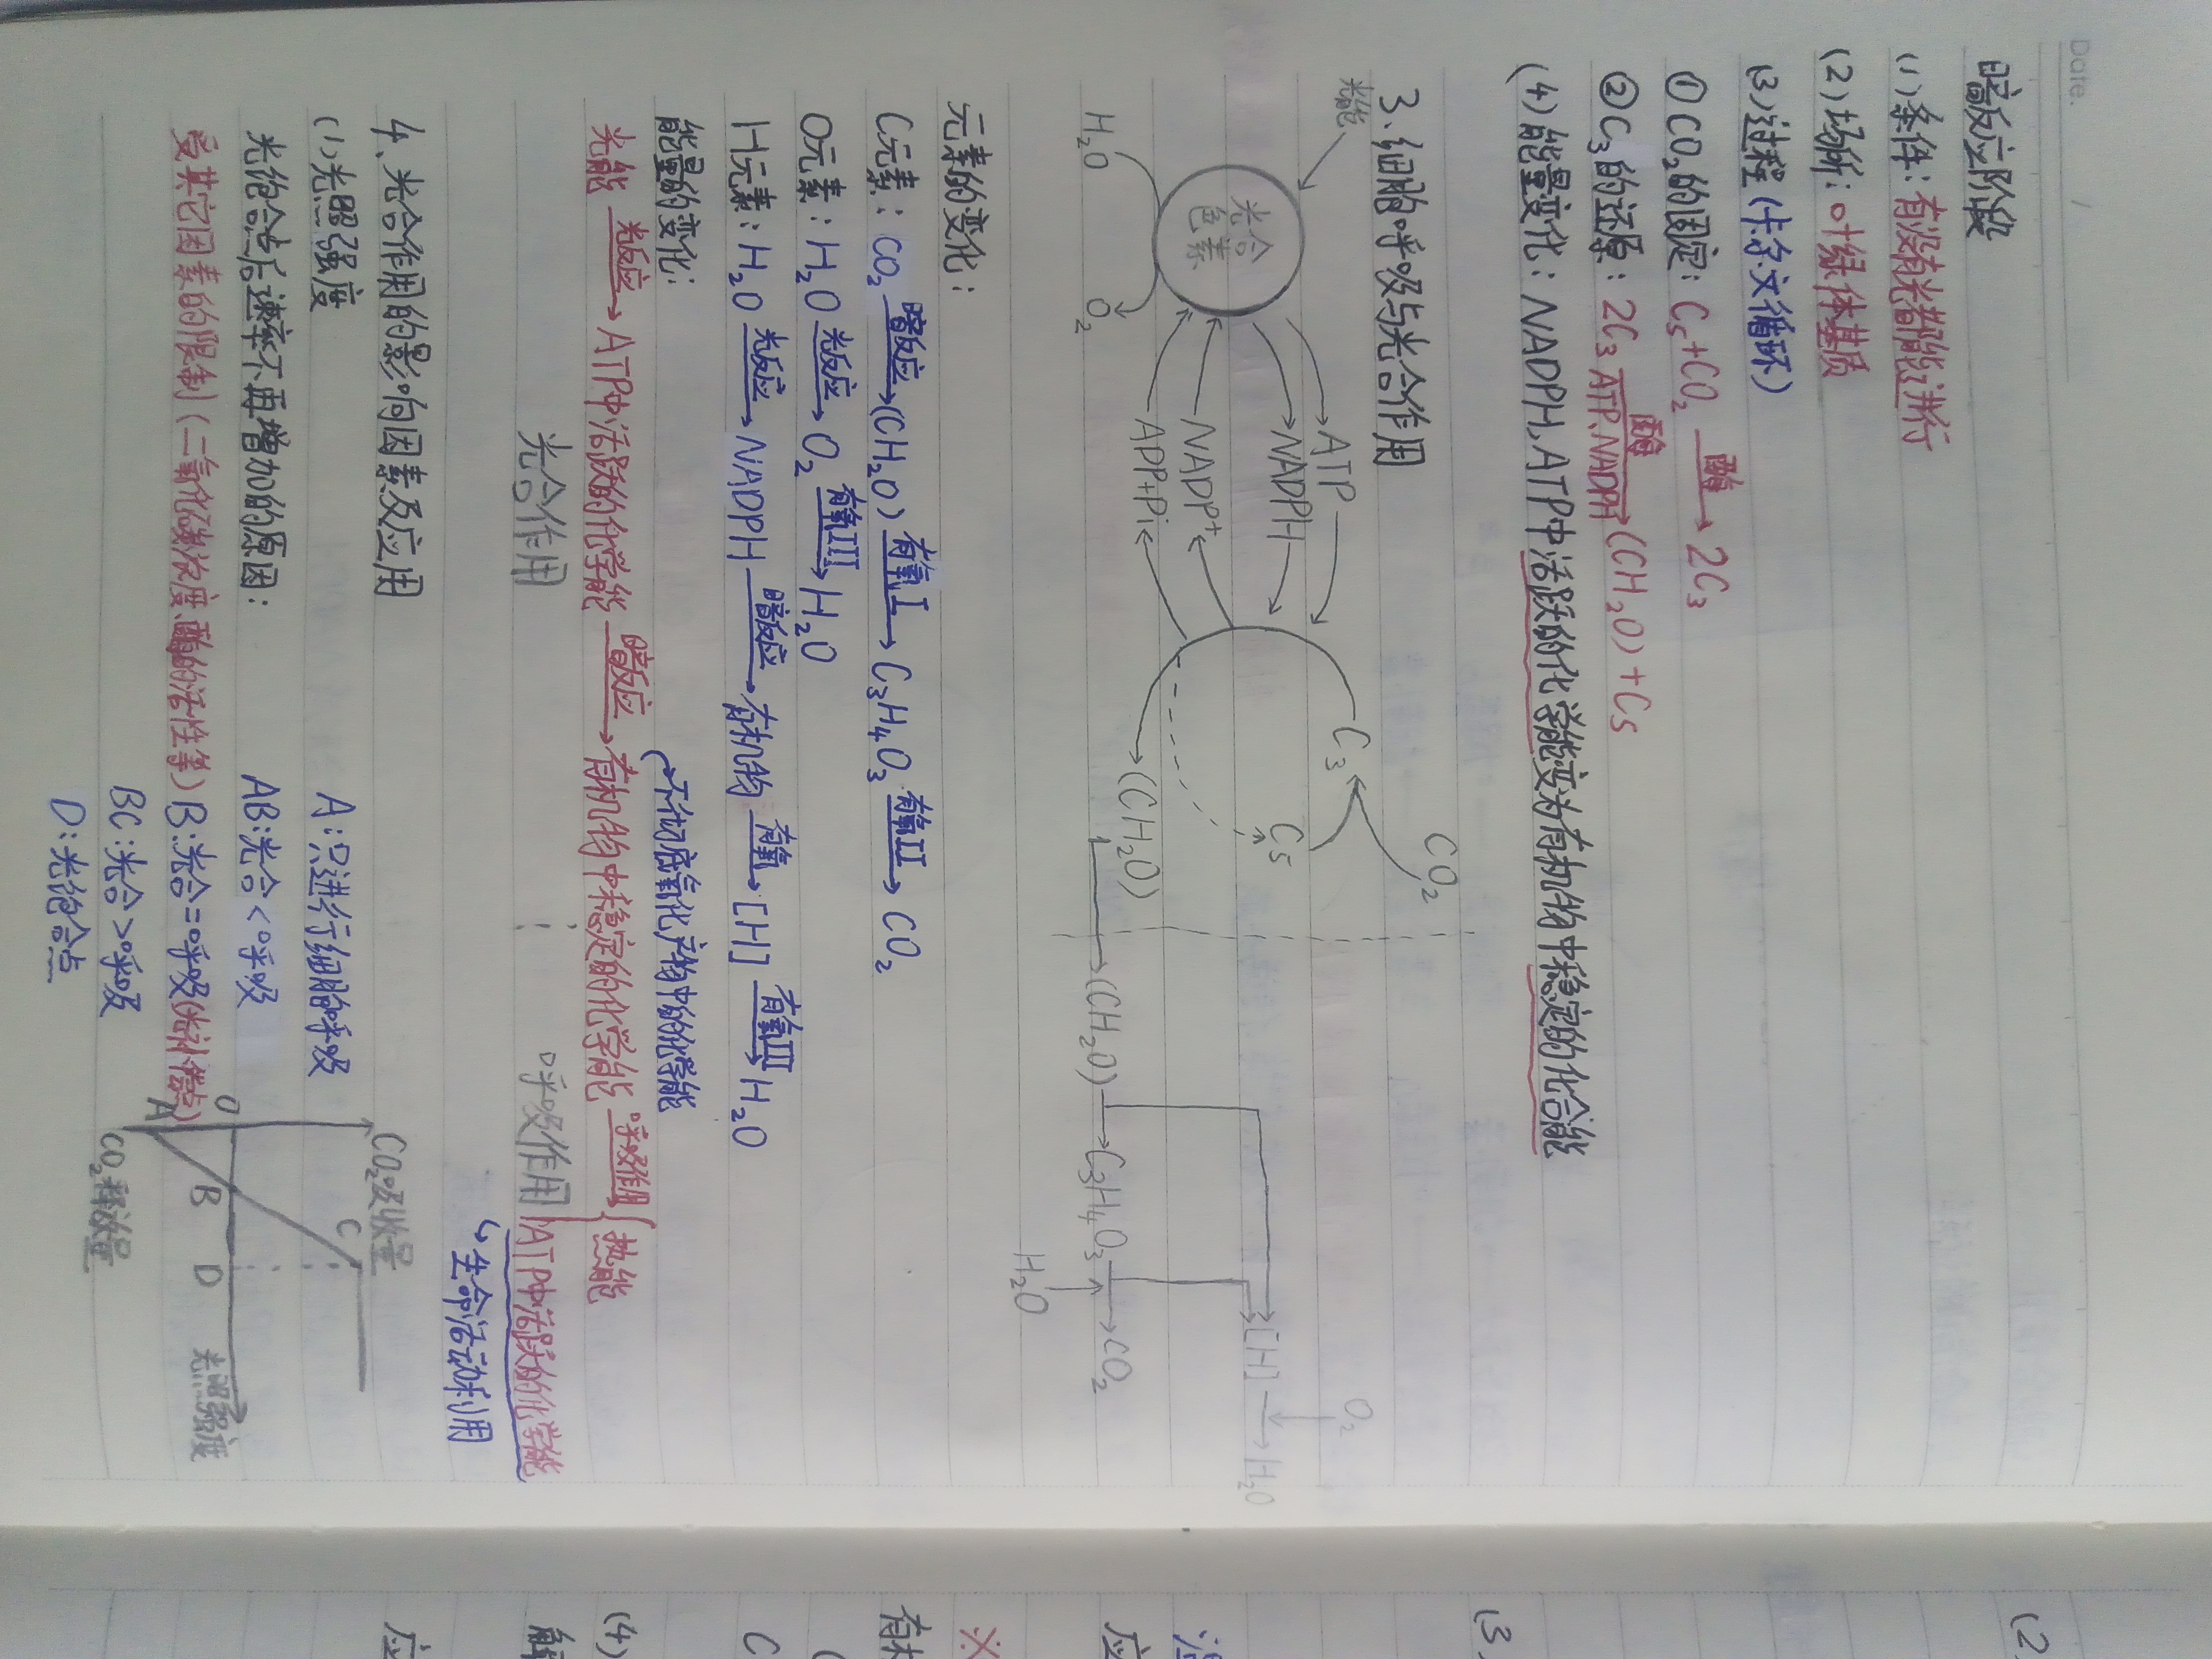 Date. /
暗反应阶段
(1)条件：有没有光都能进行
(2)场所：叶绿体基质
(3)过程(卡尔文循环)
①CO₂的固定：C₅+CO₂ 酶→ 2C₃
②C₃的还原：2C₃ 酶 ATP、NADPH→(CH₂O)+C₅
(4)能量变化：NADPH,ATP中活跃的化学能变为有机物中稳定的化合能
3、细胞呼吸与光合作用
光能
CO₂
O₂
ATP
C₃
光合色素
NADPH
C₅
[H]→H₂O
NADP⁺
H₂O
O₂
APP+Pi
(CH₂O)
(CH₂O)→C₃H₄O₃→CO₂
H₂O
元素的变化：
C元素：CO₂ 暗反应→(CH₂O) 有氧I→C₃H₄O₃ 有氧II→CO₂
O元素：H₂O 光反应→O₂ 有氧III→H₂O
H元素：H₂O 光反应→NADPH 暗反应→有机物 有氧→[H] 有氧III→H₂O
能量的变化：
不彻底氧化产物中的化学能
光能 光反应→ATP中活跃的化学能 暗反应→有机物中稳定的化学能 呼吸作用{热能
ATP中活跃的化学能
光合作用
呼吸作用
↳生命活动利用
4、光合作用的影响因素及应用
(1)光照强度
光饱合点后速率不再增加的原因：
受其它因素的限制(二氧化碳浓度、酶的活性等)
A:只进行细胞呼吸
AB:光合<呼吸
B:光合=呼吸(光补偿点)
BC:光合>呼吸
D:光饱合点
CO₂吸收量
C
O
B
D
光照强度
A
CO₂释放量
(2
(3
应
※
有机
(
C
(4)
解
应